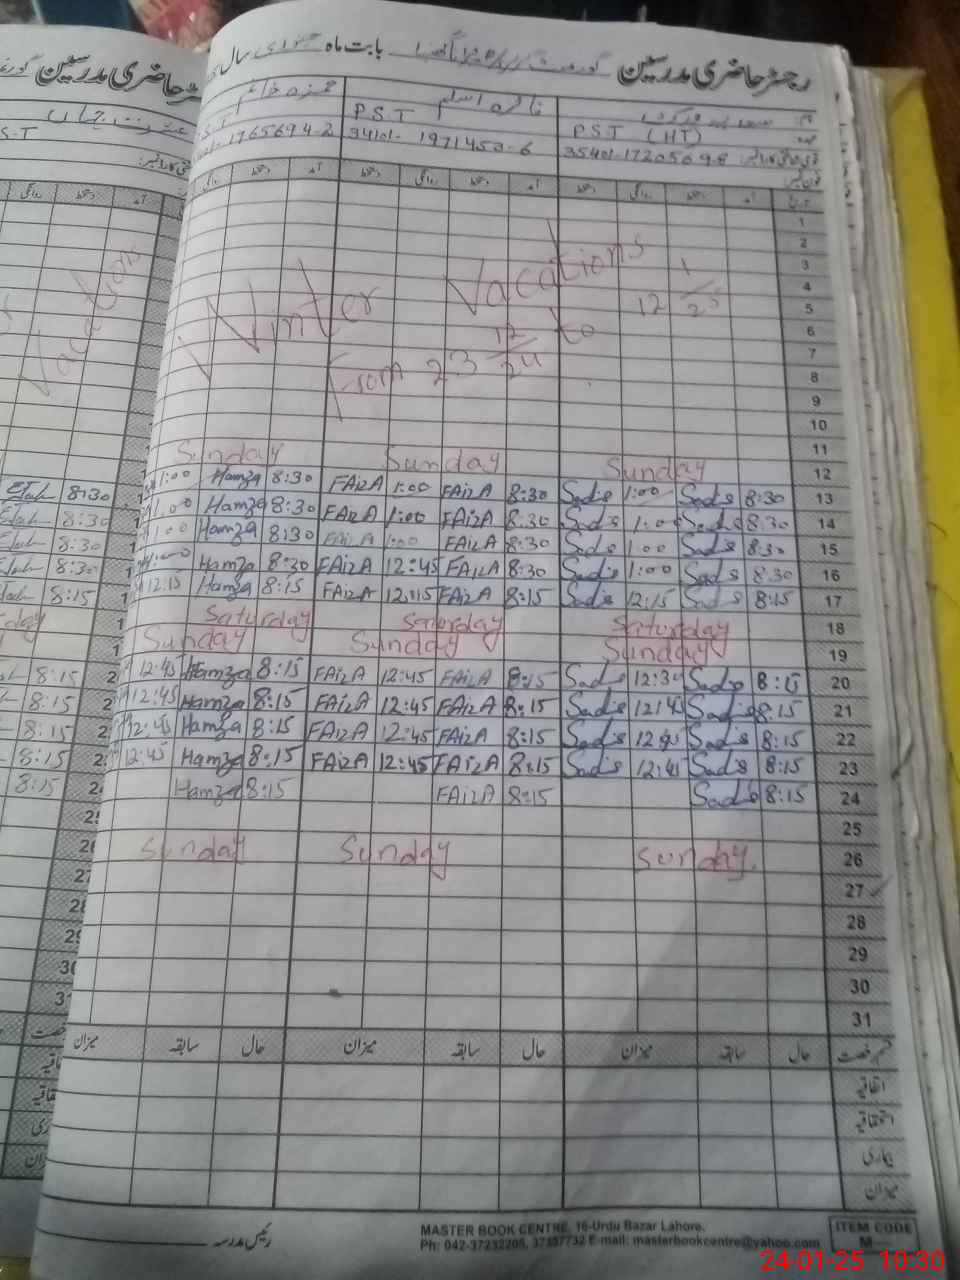 رجسٹر حاضری مدرسین بابت ماہ جنوری سال
نام
حمزہ
P.S.T P.S.T (HT)
34101- 1971453-6 35401-1720569-8
تاریخ آمد دستخط روانگی دستخط آمد دستخط روانگی دستخط
1
2
3
4
5
6
7
8
9
10
11
Winter Vacations
from 23 12/24 to 12 1/25
Vacations
Sunday Sunday Sunday 12
8:30 1:00 Hamza 8:30 FAizA 1:00 FAizA 8:30 Sadia 1:00 Sadia 8:30 13
8:30 1:00 Hamza 8:30 FAizA 1:00 FAizA 8:30 Sadia 1:00 Sadia 8:30 14
8:30 1:00 Hamza 8:30 FAizA 1:00 FAizA 8:30 Sadia 1:00 Sadia 8:30 15
8:30 Hamza 8:30 FAizA 12:45 FAizA 8:30 Sadia 1:00 Sadia 8:30 16
8:15 12:15 Hamza 8:15 FAizA 12:15 FAizA 8:15 Sadia 12:15 Sadia 8:15 17
Saturday Saturday Saturday 18
Sunday Sunday Sunday 19
8:15 12:45 Hamza 8:15 FAizA 12:45 FAizA 8:15 Sadia 12:30 Sadia 8:15 20
8:15 12:45 Hamza 8:15 FAizA 12:45 FAizA 8:15 Sadia 12:45 Sadia 8:15 21
8:15 12:45 Hamza 8:15 FAizA 12:45 FAizA 8:15 Sadia 12:45 Sadia 8:15 22
8:15 12:45 Hamza 8:15 FAizA 12:45 FAizA 8:15 Sadia 12:45 Sadia 8:15 23
8:15 Hamza 8:15 FAizA 8:15 Sadia 8:15 24
25
Sunday Sunday Sunday 26
27
28
29
30
31
قسم رخصت حال سابقہ میزان حال سابقہ میزان حال سابقہ میزان
اتفاقیہ
استحقاقیہ
بیماری
میزان
رئیس مدرسہ
MASTER BOOK CENTRE, 16-Urdu Bazar Lahore.
Ph: 042-37232205, 37357732 E-mail: masterbookcentre@yahoo.com
ITEM CODE
M-
24-01-25 10:30